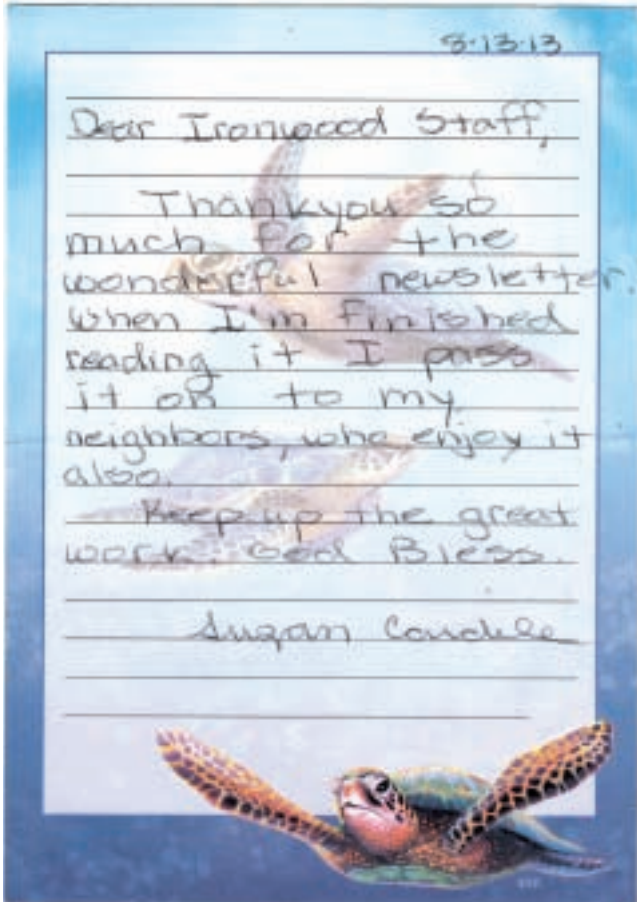 8-13-13
Dear Ironwood Staff,
Thankyou so
much for the
wonderful newsletter.
when I'm finished
reading it I pass
it on to my
neighbors, who enjoy it
also.
Keep up the great
work. God Bless.
Suzan